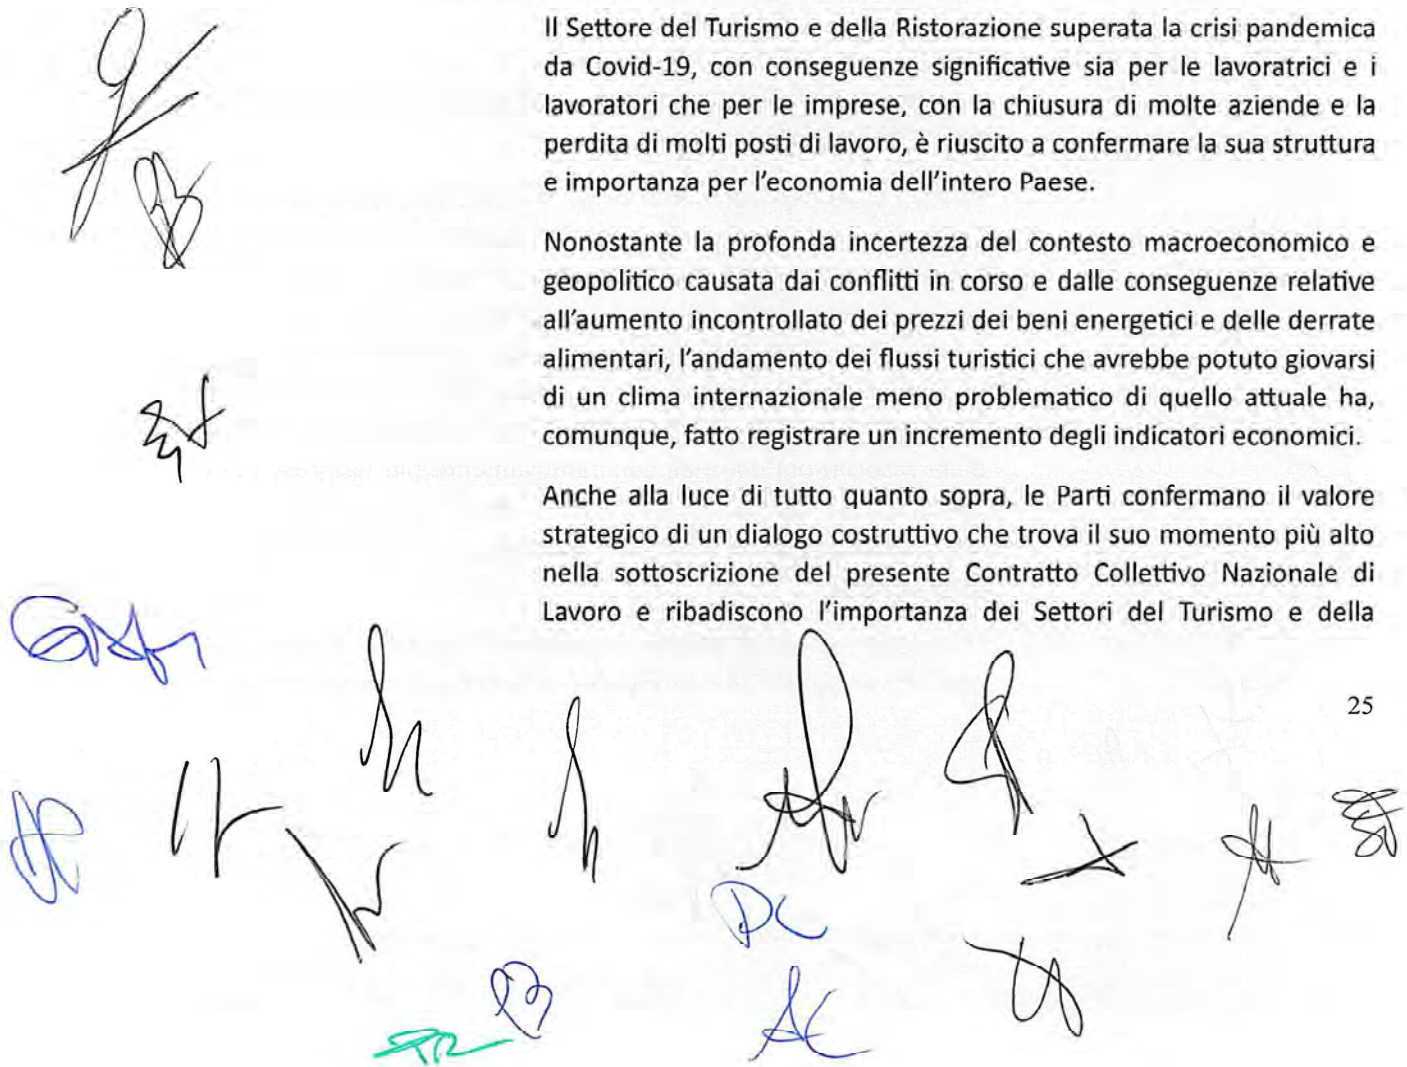 Il Settore del Turismo e della Ristorazione superata la crisi pandemica
da Covid-19, con conseguenze significative sia per le lavoratrici e i
lavoratori che per le imprese, con la chiusura di molte aziende e la
perdita di molti posti di lavoro, è riuscito a confermare la sua struttura
e importanza per l'economia dell'intero Paese.
Nonostante la profonda incertezza del contesto macroeconomico e
geopolitico causata dai conflitti in corso e dalle conseguenze relative
all'aumento incontrollato dei prezzi dei beni energetici e delle derrate
alimentari, l'andamento dei flussi turistici che avrebbe potuto giovarsi
di un clima internazionale meno problematico di quello attuale ha,
comunque, fatto registrare un incremento degli indicatori economici.
Anche alla luce di tutto quanto sopra, le Parti confermano il valore
strategico di un dialogo costruttivo che trova il suo momento più alto
nella sottoscrizione del presente Contratto Collettivo Nazionale di
Lavoro e ribadiscono l'importanza dei Settori del Turismo e della
25
DC